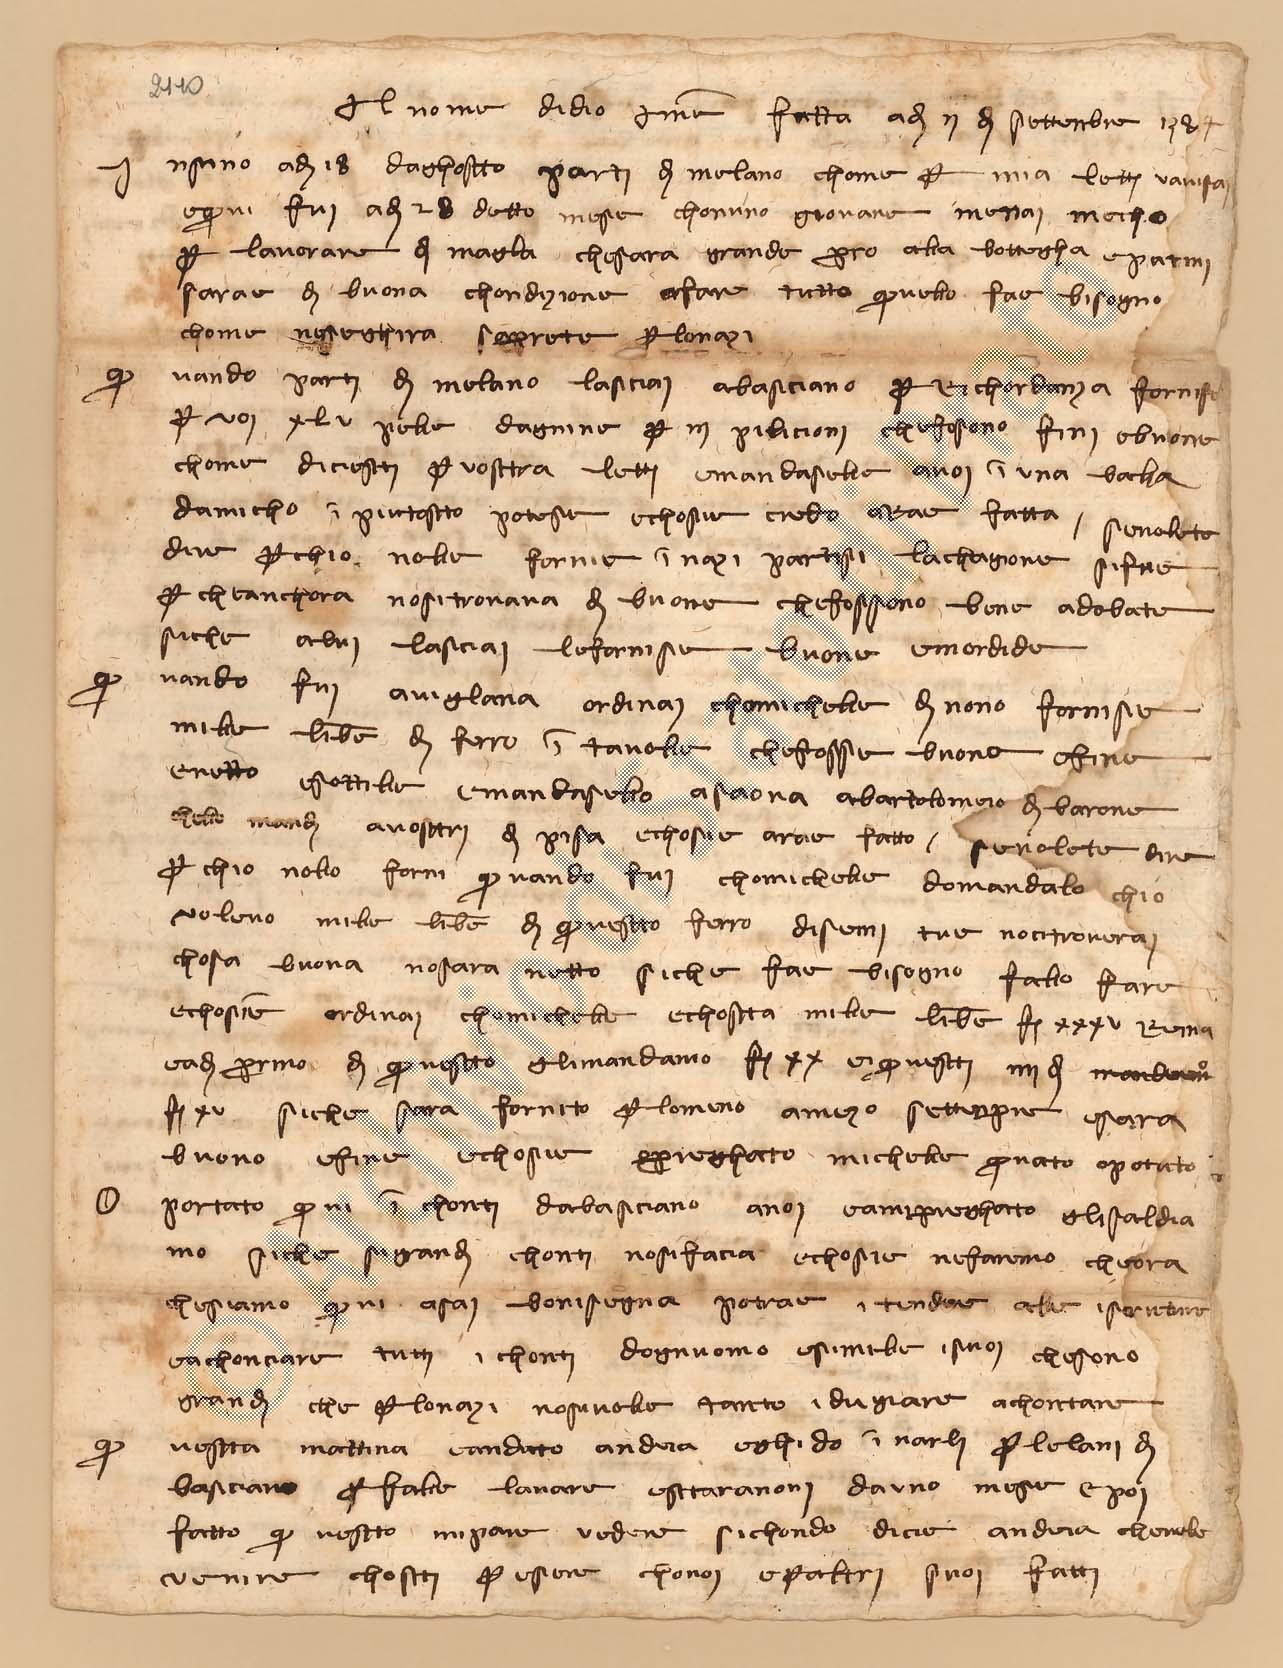 2110
Al nome didio Ame fatta adi ij di settenbre 1384
I nsino adi 18 daghostto parti di melano chome per mia letti vavisai
e qui fui adi 28 detto mese chonuno giovane menai mecho
per lavorare di magla chesara grande pro ala bottegha eparmi
sarae di buona chondizione afare tutto quello fae bisogno
chome neseghira saprete perlonazi
Q uando parti di melano lasciai abasciano per Richordanza fornise
per voi xlv pelle dagnine per iij pilicioni chefosono fini ebuone
chome diciestti pervosttra letti emandaselle avoi ī una balla
damicho ī piutostto potesie echosie credo arae fatta / sevolete
dire perchio nolle fornie īnazi partisi lachagione sifue
percheanchora nositrovava di buone chefosisono bene adobate
siche alui lasciai lefornisie buone emordide
Q uando fui aviglana ordinai chomichelle di nono fornisie
mille libē di ferro ī tavolle chefossie buono efine
enetto esottile emandasello asaona abartolomeio di barone
chello mandi avosttri di pisa echosie arae fatto / sevolete dire
perchio nollo forni quando fui chomichelle domandalo chio
volevo mille libē di questto ferro disemi tue nocitroverai
chosa buona nosara netto siche fae bisogno fallo fare
echosiē ordinai chomichelle echostta mille libē fi xxxv Reina
eadi primo di questto glimandamo fi xx eiquestti iiij di manderō
fi xv siche sara fornito perlomeno amezo settenpre esara
buono efine echosie opreghato michelle quato opotuto
O portato qui ī chonti dabasciano avoi eamipreghato glisaldia
mo siche sigrandi chonti nosifacia echosie nefaremo cheora
chesiamo qui asai bonisegna potrae itendere alle iscrieture
eachonciare tutti i chonti dognuomo esimile isuoi chesono
grandi che perlonazi nosivolle tanto idugiare achontare
Q uestta mattina eandato andeia eghido īnarli perlelani di
basciano perfalle lavare esttaranoni dauno mese epoi
fatto questto mipare vedere sichondo dicie andeia chevole
venire chostti per esere chonoi eperaltri suoi fatti